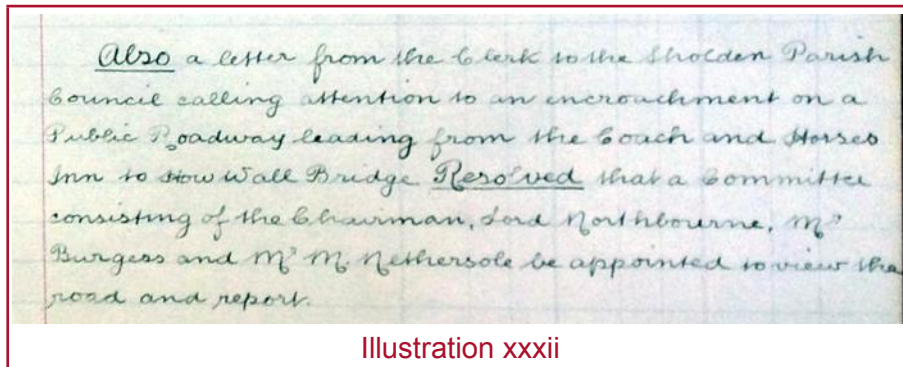 Also a letter from the Clerk to the Sholden Parish
Council calling attention to an encroachment on a
Public Roadway leading from the Coach and Horses
Inn to How Wall Bridge Resolved that a Committee
consisting of the Chairman, Lord Northbourne, Mr
Burgess and Mr M. Nethersole be appointed to view the
road and report.
Illustration xxxii